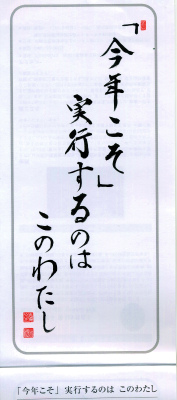 「今年こそ」
実行するのは
このわたし
「今年こそ」 実行するのは このわたし